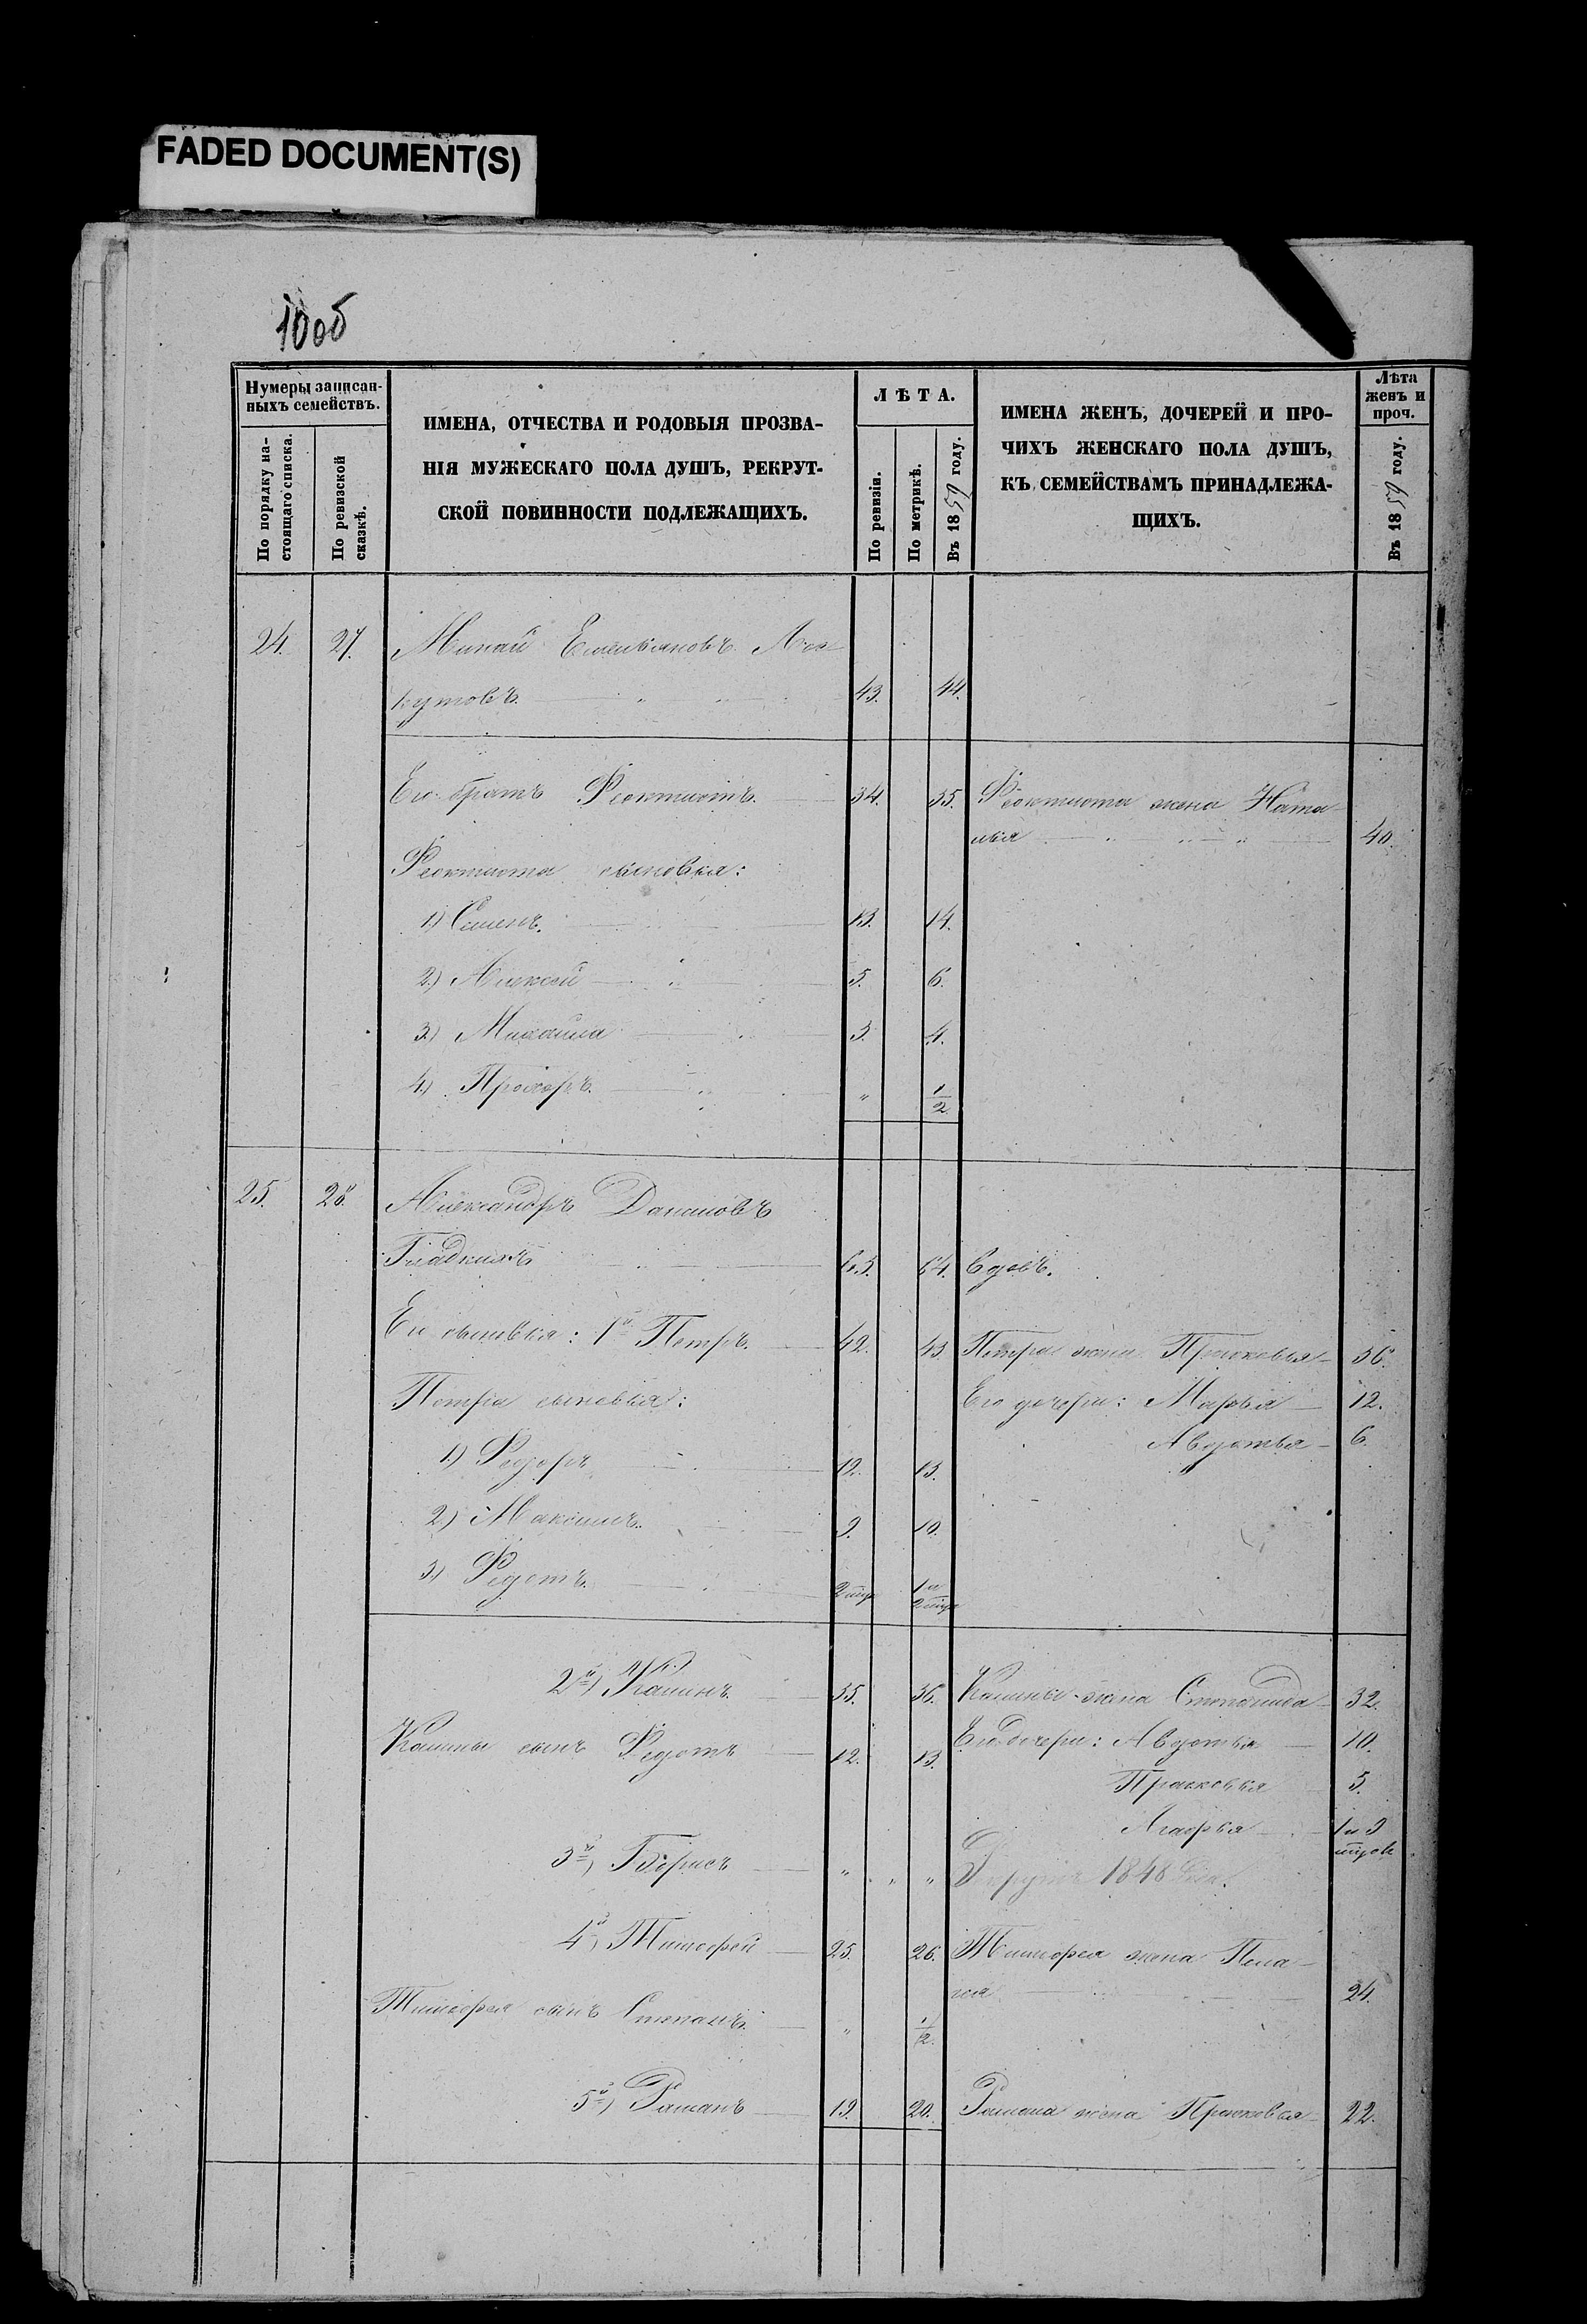 FADED DOCUMENT(S)
10об
Нумеры записан-
ныхъ семействъ.
По порядку на-
стоящаго списка.
По ревизской
сказкѣ.
ИМЕНА, ОТЧЕСТВА И РОДОВЫЯ ПРОЗВА-
НІЯ МУЖЕСКАГО ПОЛА ДУШЪ, РЕКРУТ-
СКОЙ ПОВИННОСТИ ПОДЛЕЖАЩИХЪ.
ЛѢТА.
По ревизіи.
По метрикѣ.
Въ 1859 году.
ИМЕНА ЖЕНЪ, ДОЧЕРЕЙ И ПРО-
ЧИХЪ ЖЕНСКАГО ПОЛА ДУШЪ,
КЪ СЕМЕЙСТВАМЪ ПРИНАДЛЕЖА-
ЩИХЪ.
Лѣта
женъ и
проч.
Въ 1859 году.
24. 27. Минай Емельяновъ
кутовъ. 43. 44.
Его братъ Феоктистъ. 34. 35. Феоктиста жена Ната
лья 40.
Феоктиста сыновья:
1) Семенъ. 13. 14.
2) Алексей 5. 6.
3) Михаила 3. 4.
4) Прохоръ. " 1/2
25. 28. Александръ Даниловъ
Гладкихъ 63. 64. вдовъ.
Его сыновья: 1й Петръ. 42. 43. Петра жена Прасковья 36.
Петра сыновья: Его дочери: Марья 12.
Авдотья 6.
1) Федоръ 12. 13.
2) Максимъ. 9. 10.
3) Федотъ.
2й) Калинъ. 35. 36. Калины жена Степанида 32.
Калины сынъ Федотъ 12. 13. Его дочери: Авдотья 10.
Прасковья 5.
Агафья
3й) Борисъ " " " 1848 года.
4й) Тимофей 25. 26. Тимофея жена Пела-
гея 24.
Тимофея сынъ Степанъ. " 1/2.
5й) Романъ 19. 20. Романа жена Прасковья 22.